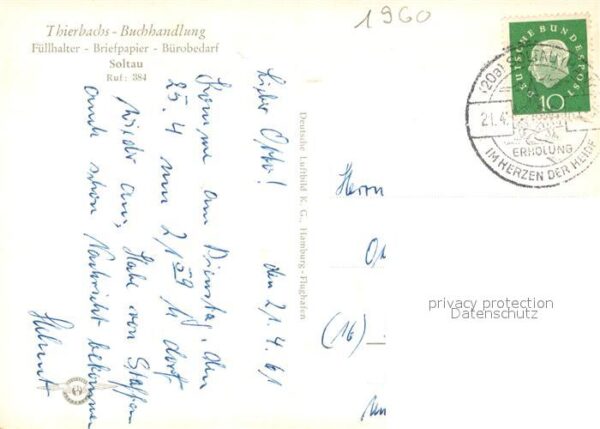 Thierbachs - Buchhandlung
Füllhalter - Briefpapier - Bürobedarf
Soltau
Ruf: 384
1960
DEUTSCHE BUNDESPOST
10
(20a)
21.4.
ERHOLUNG
IM HERZEN DER HEIDE
den 21.4.61
Lieber Otto!
Komme am Dienstag, den
25.4 um 21 59 h dort
wieder an, Habe von Steffen
auch schon Nachricht bekommen
Helmut
Deutsche Luftbild K. G., Hamburg-Flughafen
Herrn
(16)
privacy protection
Datenschutz